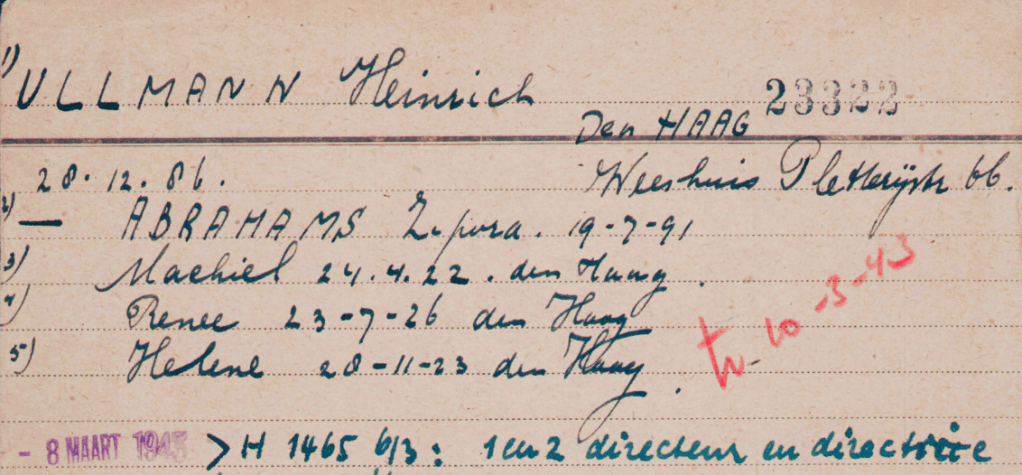 1) ULLMANN Heinrich 23322
Den HAAG
28.12.86. Weeshuis Pletterijstr 66.
2) — ABRAHAMS Zipora. 19-7-91
3) Machiel 24.4.22. den Haag.
4) Renee 23-7-26 den Haag
5) Helene 28-11-23 den Haag.
tr. 10-3-43
- 8 MAART 1943 > H 1465 6/3: 1 en 2 directeur en directrice